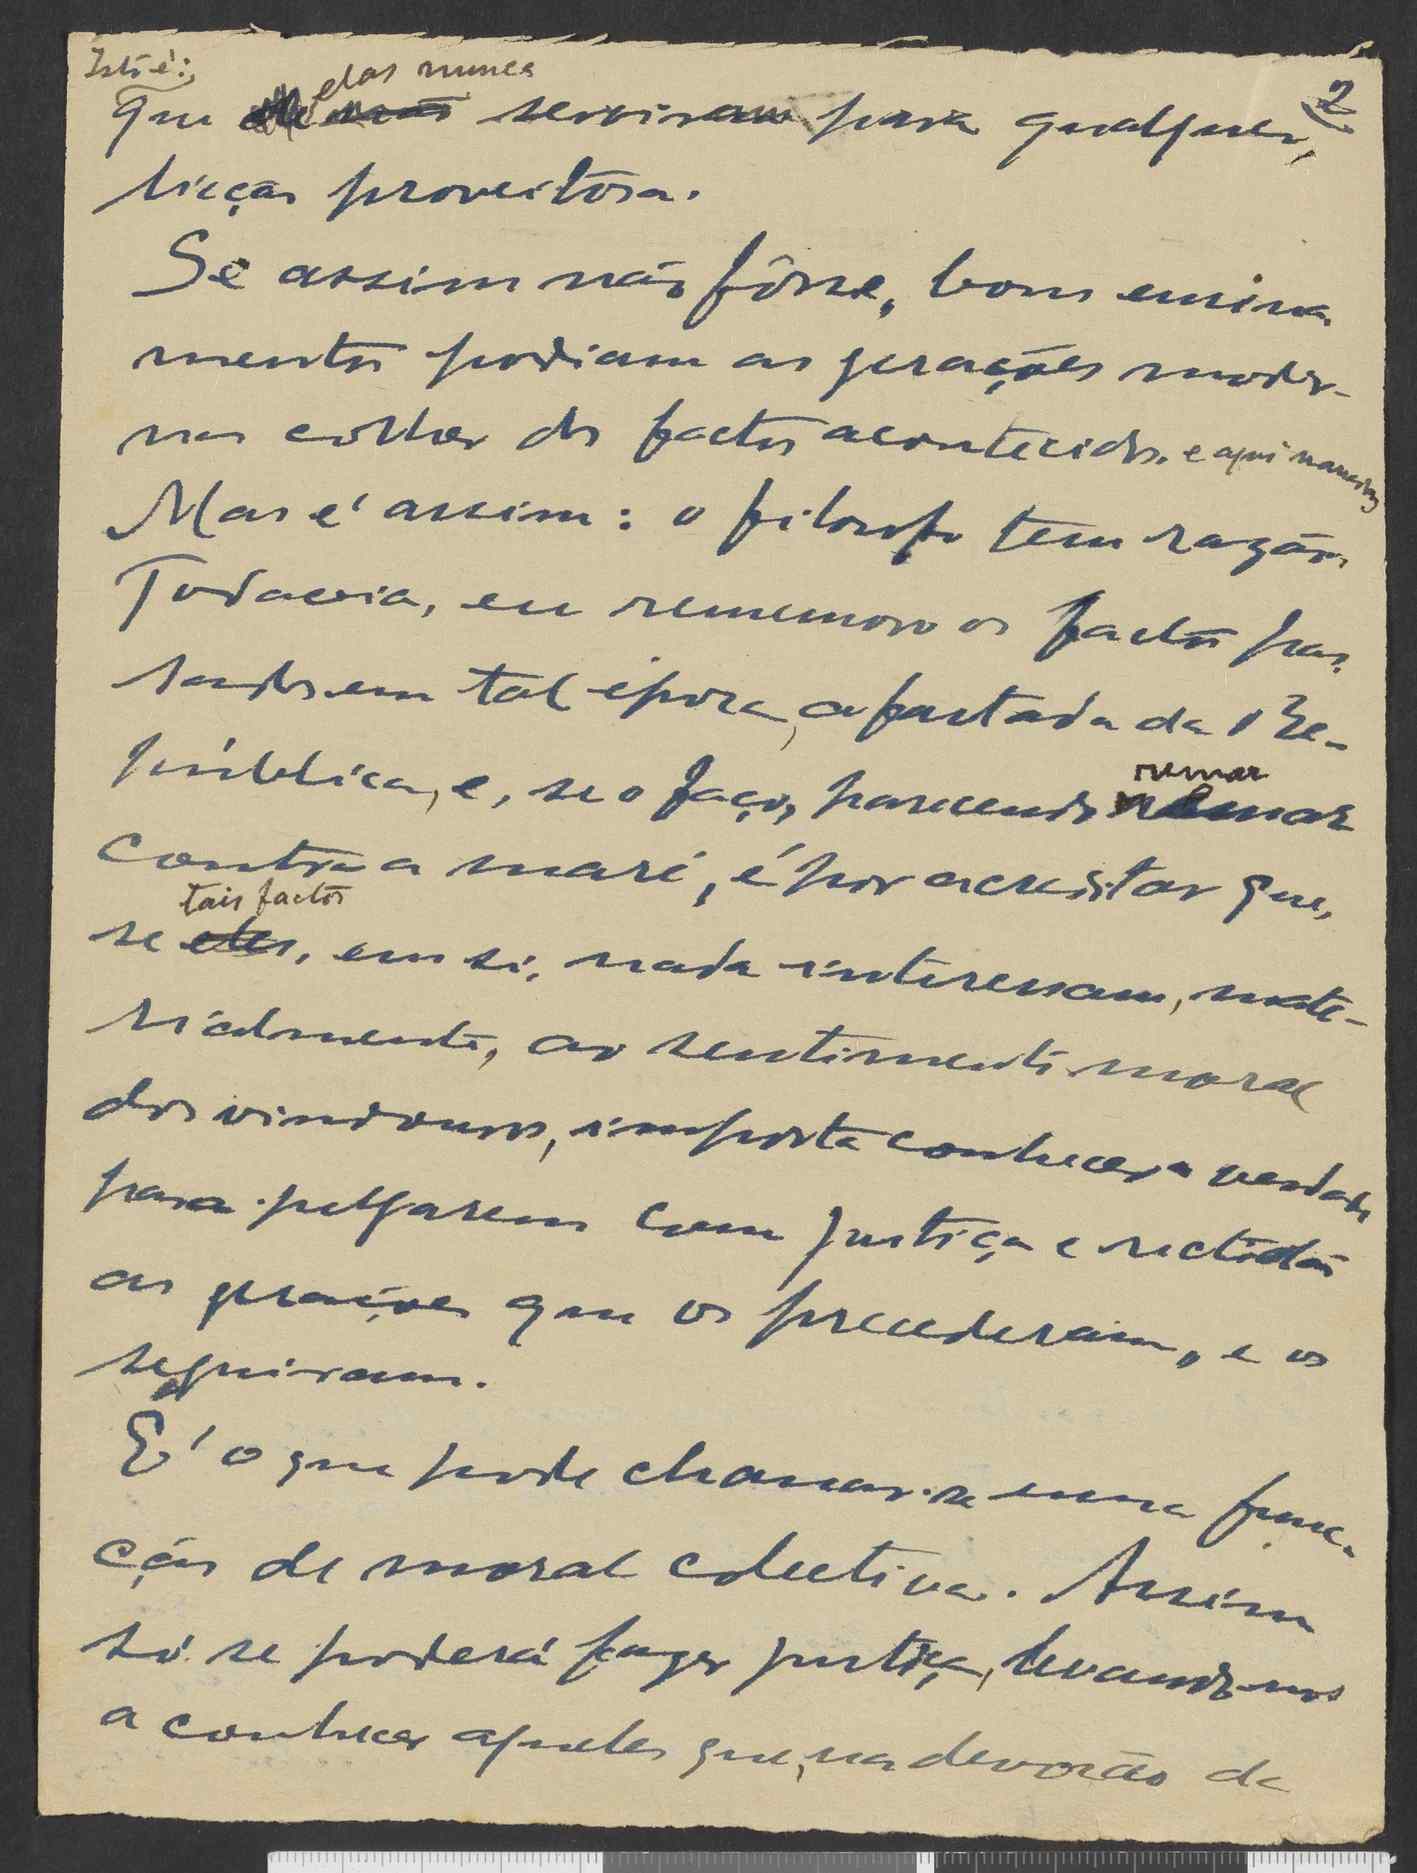 2
Isto é:,
elas nunca
que serviram para qualquer,
licção proveitosa.
Se assim não fôsse, bons ensina-
mentos podiam as gerações moder-
nas colher dos factos acontecidos. e aqui narrados
Mas é assim: o filosofo tem razão.
Todavia, eu rememoro os factos pas-
sados em tal época, afastada da Re-
pública, e, se o faço, parecendo remar
remar
contra a maré, é por acreditar que,
tais factos
se eles, em si, nada interessam, mate-
rialmente, ao sentimento moral
dos vindouros, importa conhecer a verdade
para julgarem com justiça e rectidão
as gerações que os precederam, e os
seguiram.
E' o que pode chamar-se uma func-
ção de moral colectiva. Assim
só se poderá fazer justiça, levando-nos
a conhecer aqueles que, na devoção de